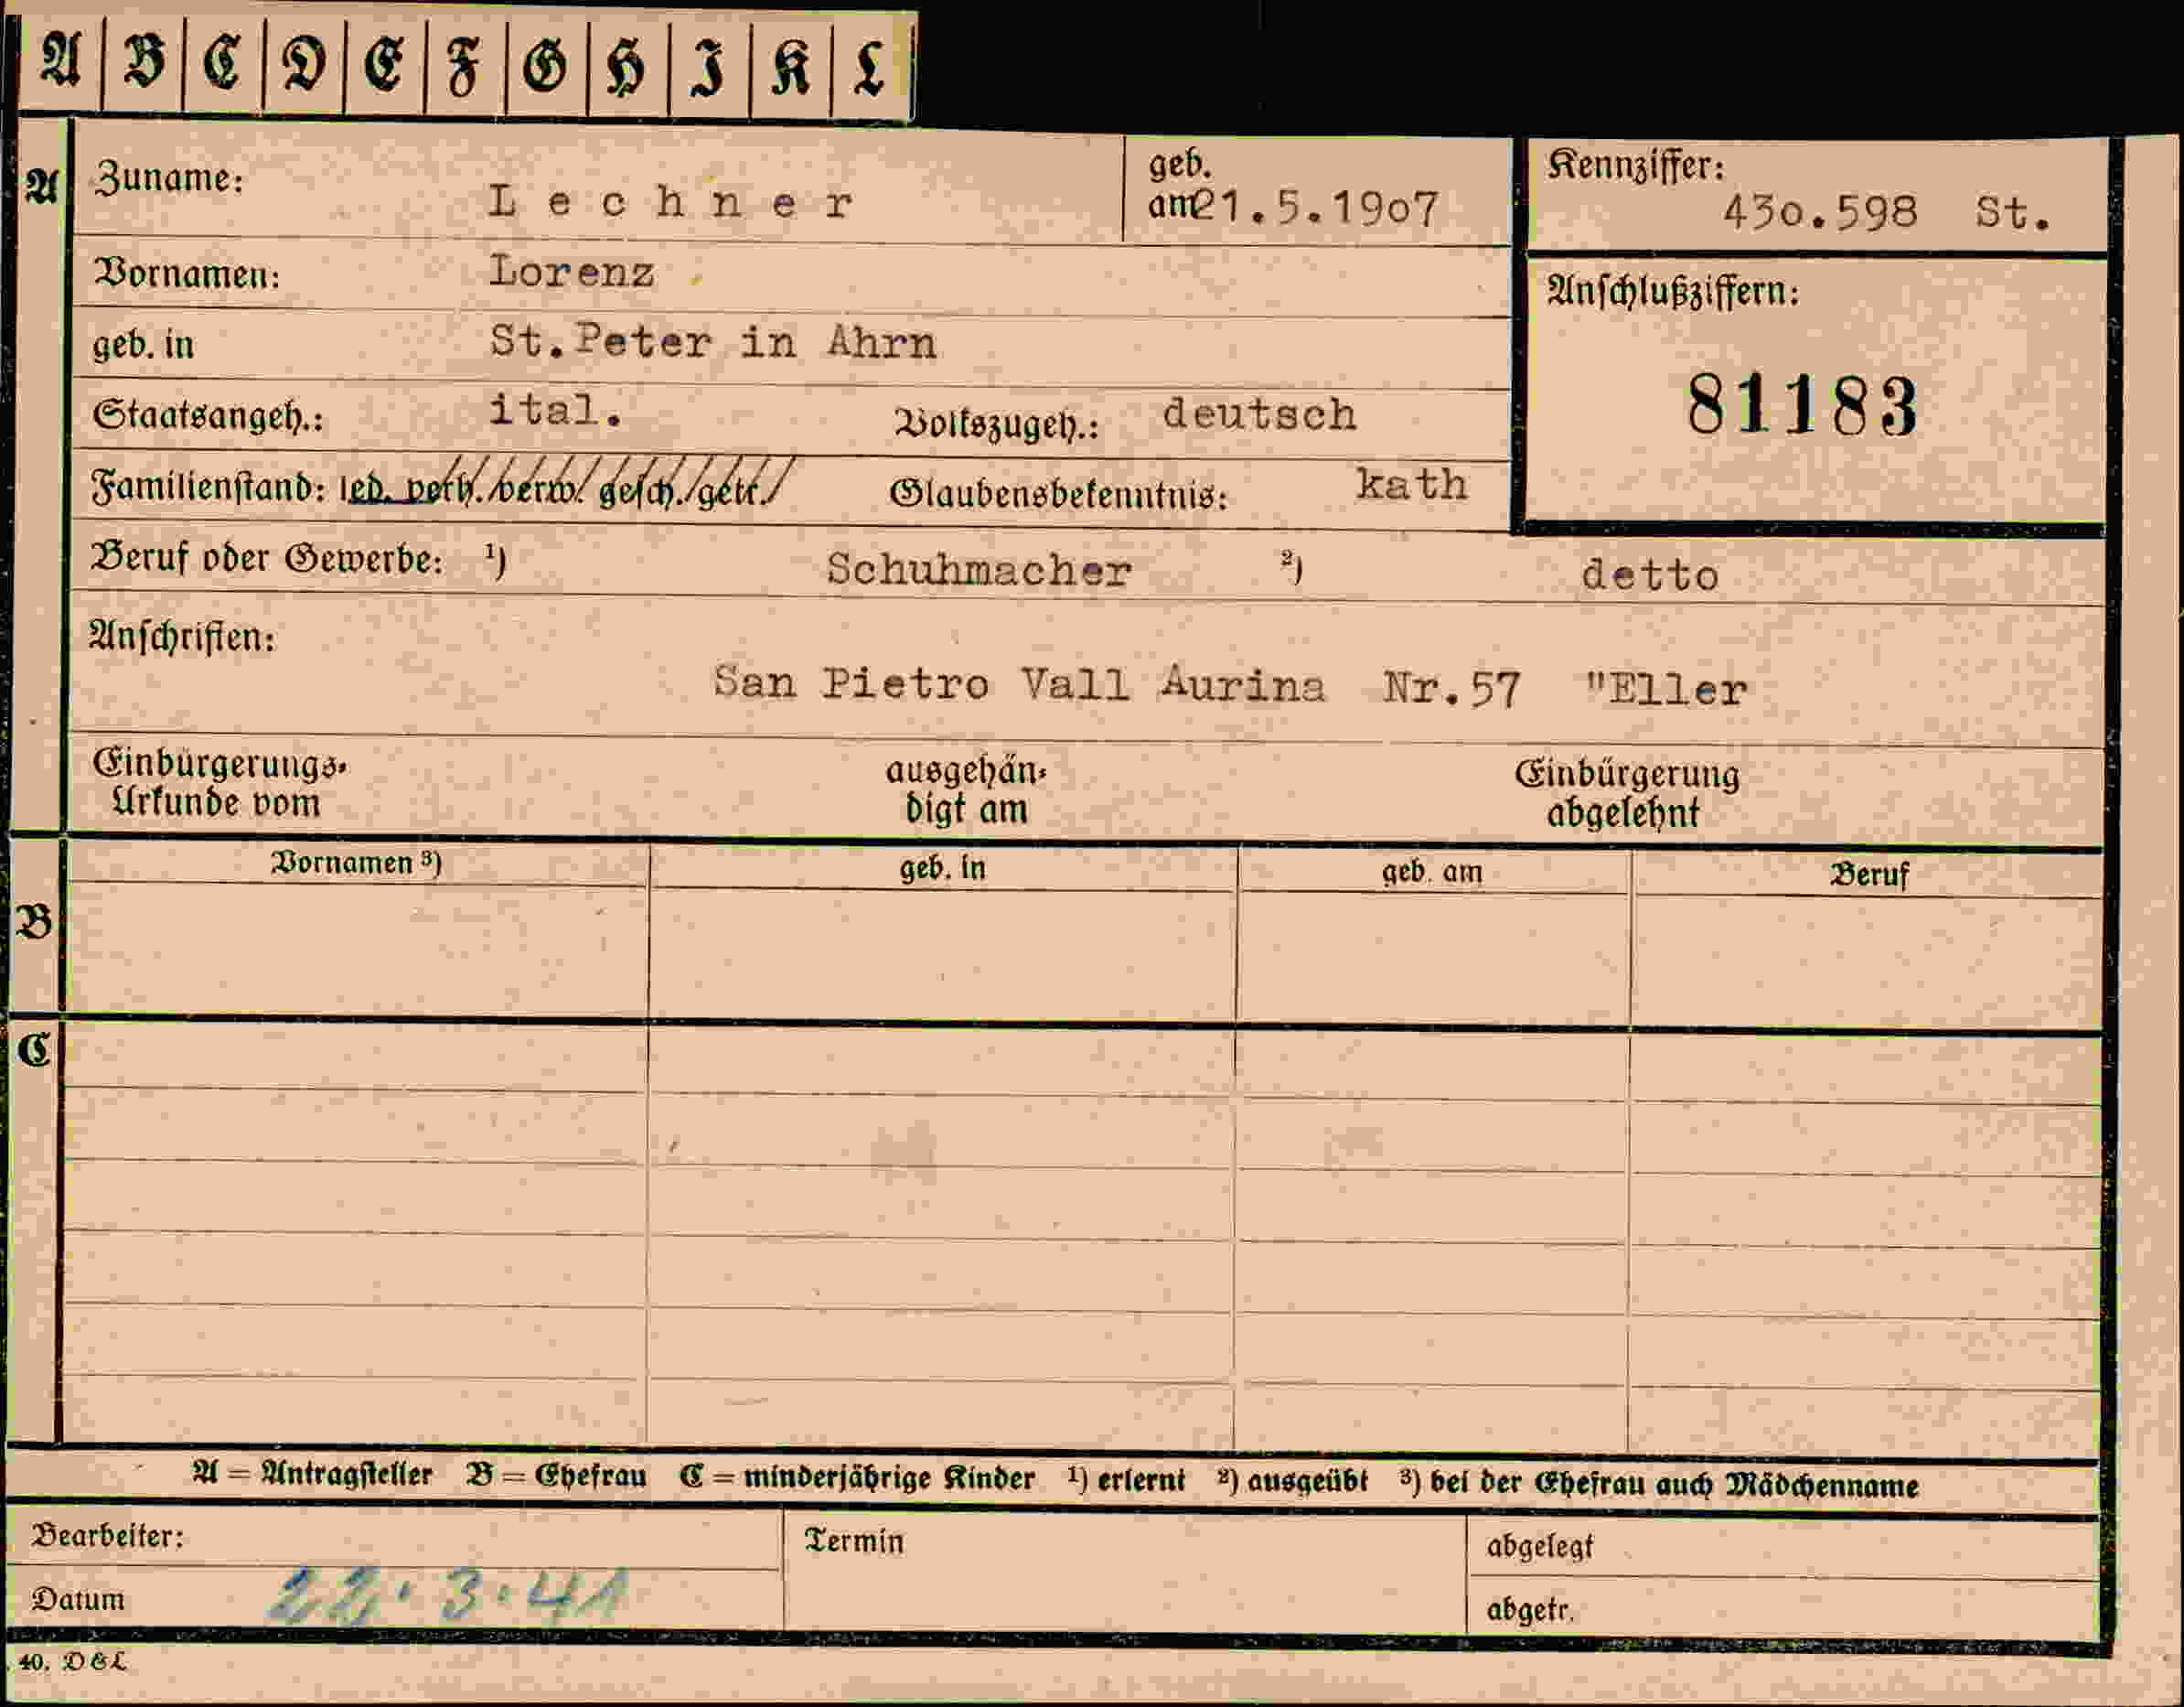 A B C D E F G H I K L
A Zuname: Lechner geb. am 21.5.1907 Kennziffer: 430.598 St.
Vornamen: Lorenz Anschlußziffern:
geb. in St.Peter in Ahrn 81183
Staatsangeh.: ital. Volkszugeh.: deutsch
Familienstand: led. verh. verw. gesch. getr. Glaubensbekenntnis: kath
Beruf oder Gewerbe: ¹) Schuhmacher ²) detto
Anschriften:
San Pietro Vall Aurina Nr.57 "Eller
Einbürgerungs- ausgehän- Einbürgerung
Urkunde vom digt am abgelehnt
Vornamen ³) geb. in geb. am Beruf
B
C
A = Antragsteller B = Ehefrau C = minderjährige Kinder ¹) erlernt ²) ausgeübt ³) bei der Ehefrau auch Mädchenname
Bearbeiter: Termin abgelegt
Datum 22.3.41 abgetr.
40. DEL